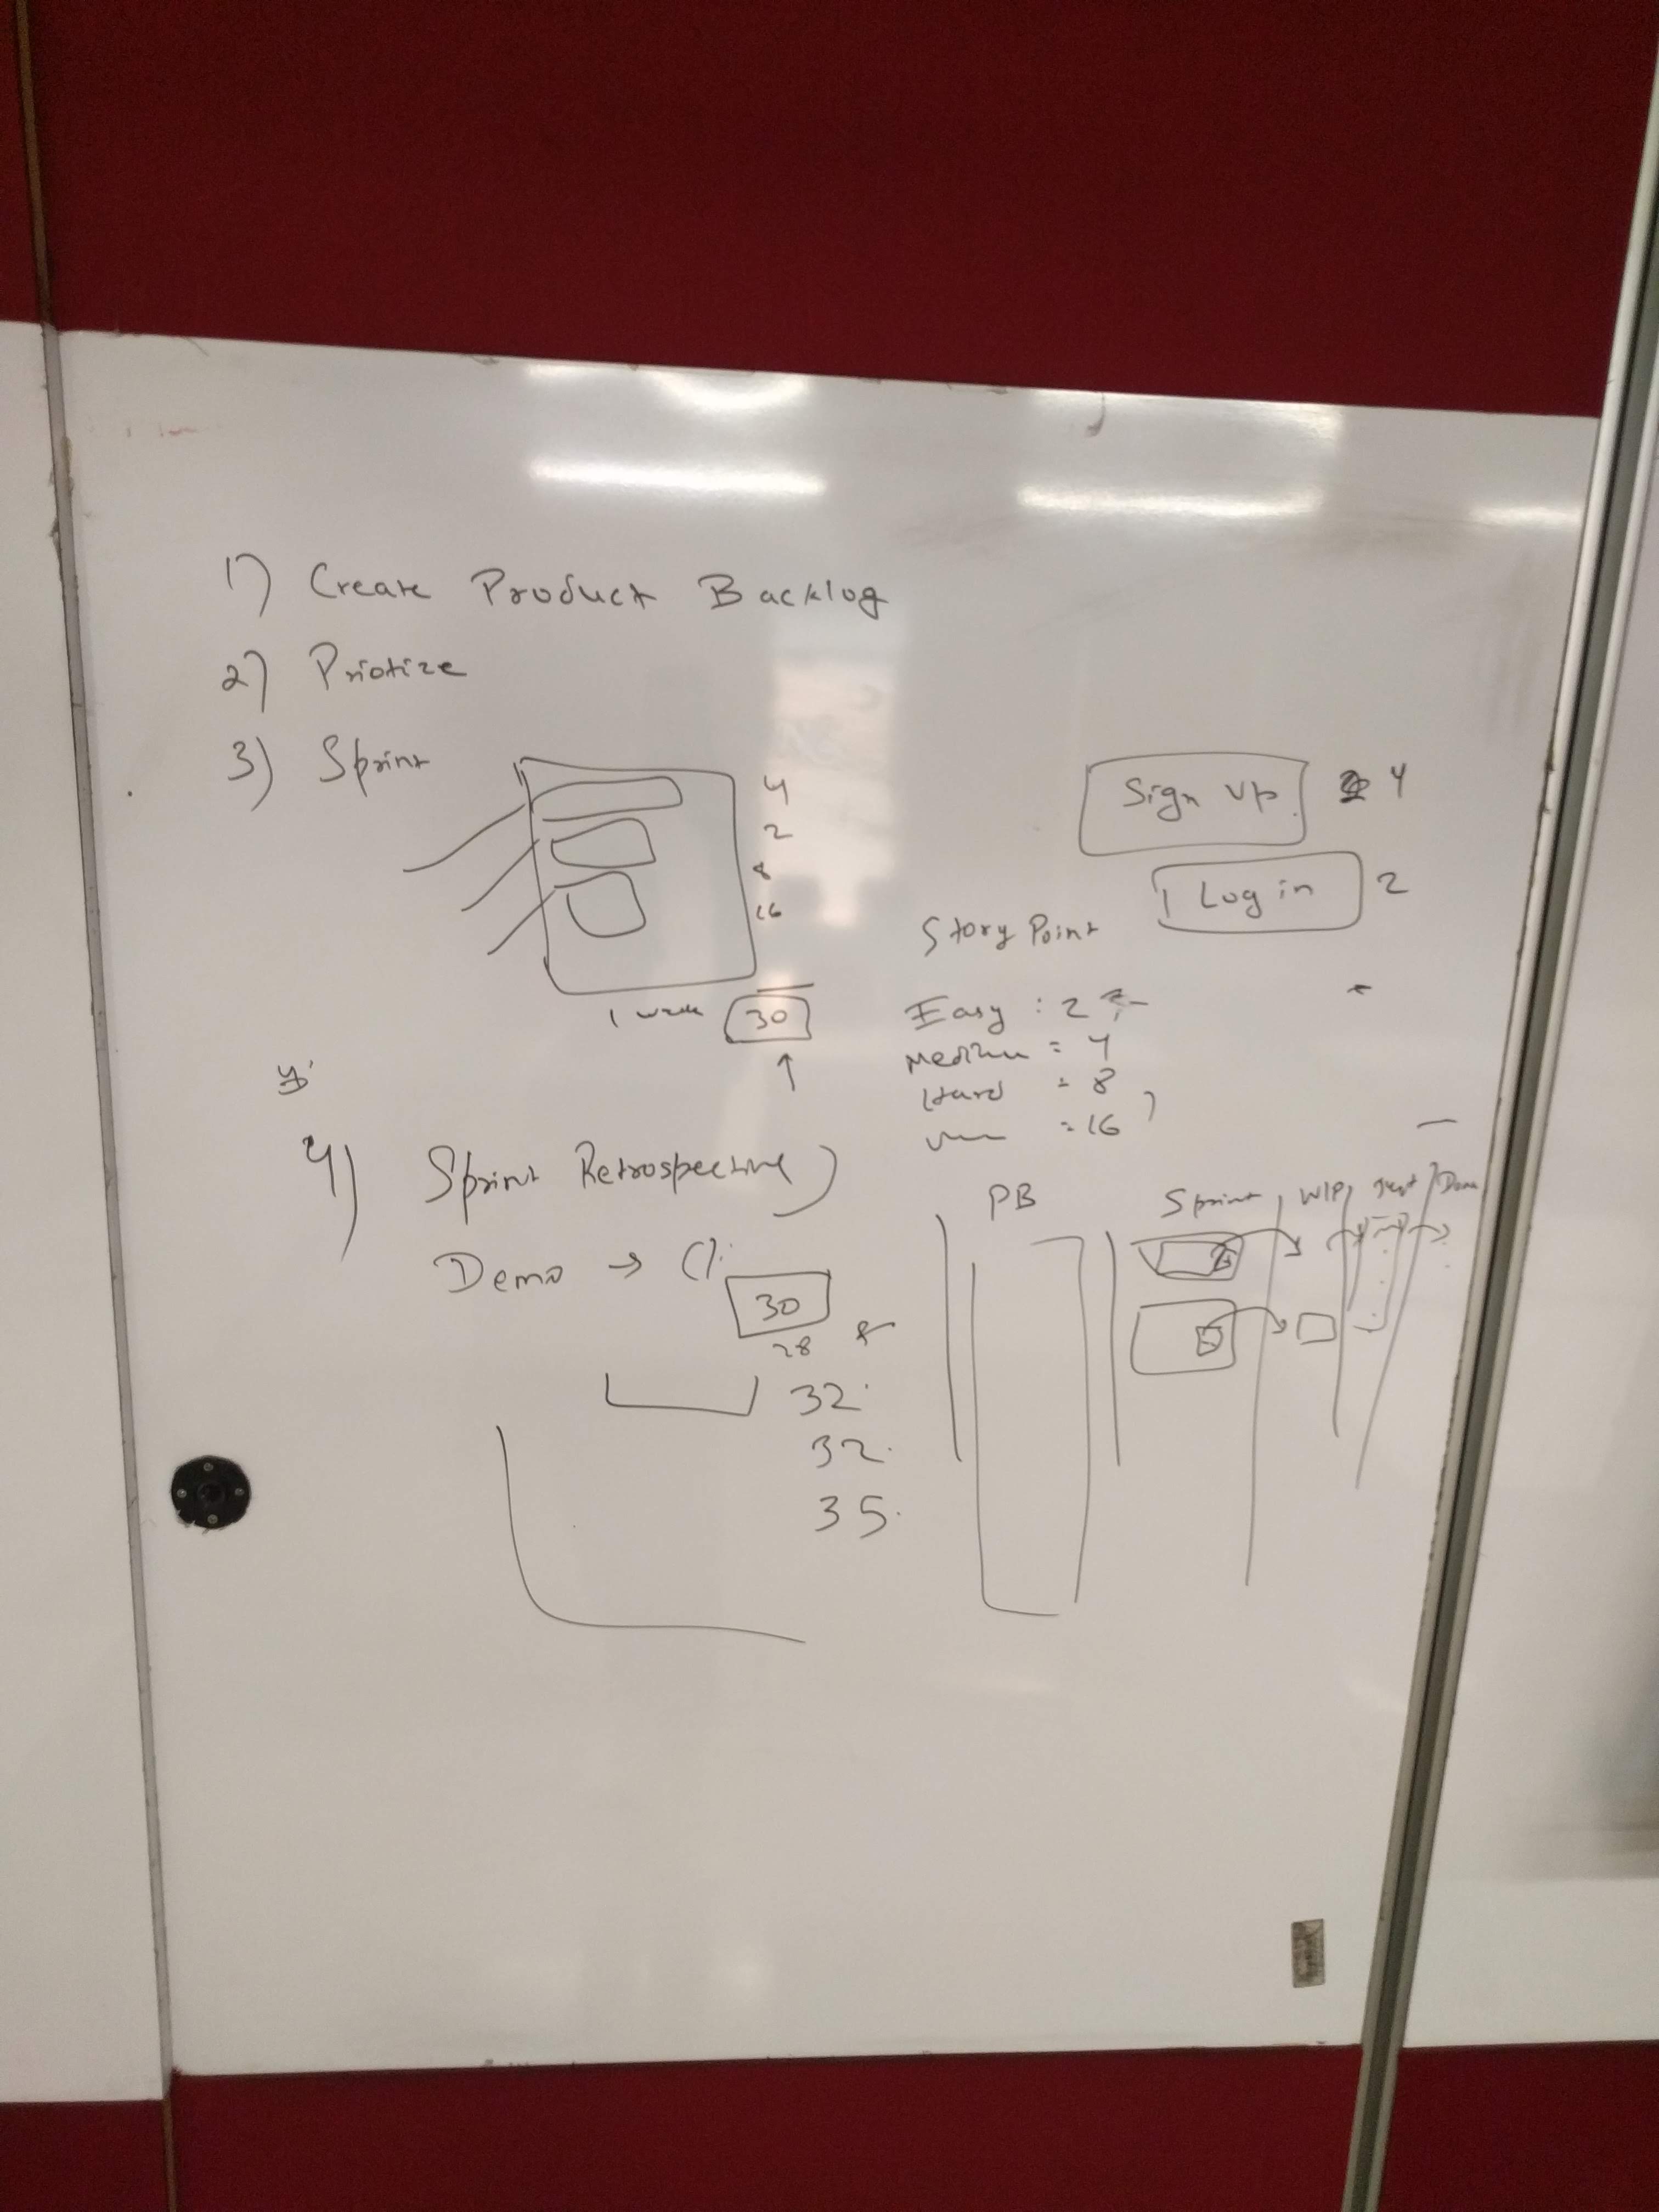 1) Create Product Backlog
2) Priotize
3) Sprint
4
2
8
16
1 week 30
Sign up 4
Log in 2
Story Point
Easy : 2
Medium = 4
Hard = 8
= 16
4) Sprint Retrospective
Demo →
30
28
32
32
35
PB
Sprint WIP Test Done